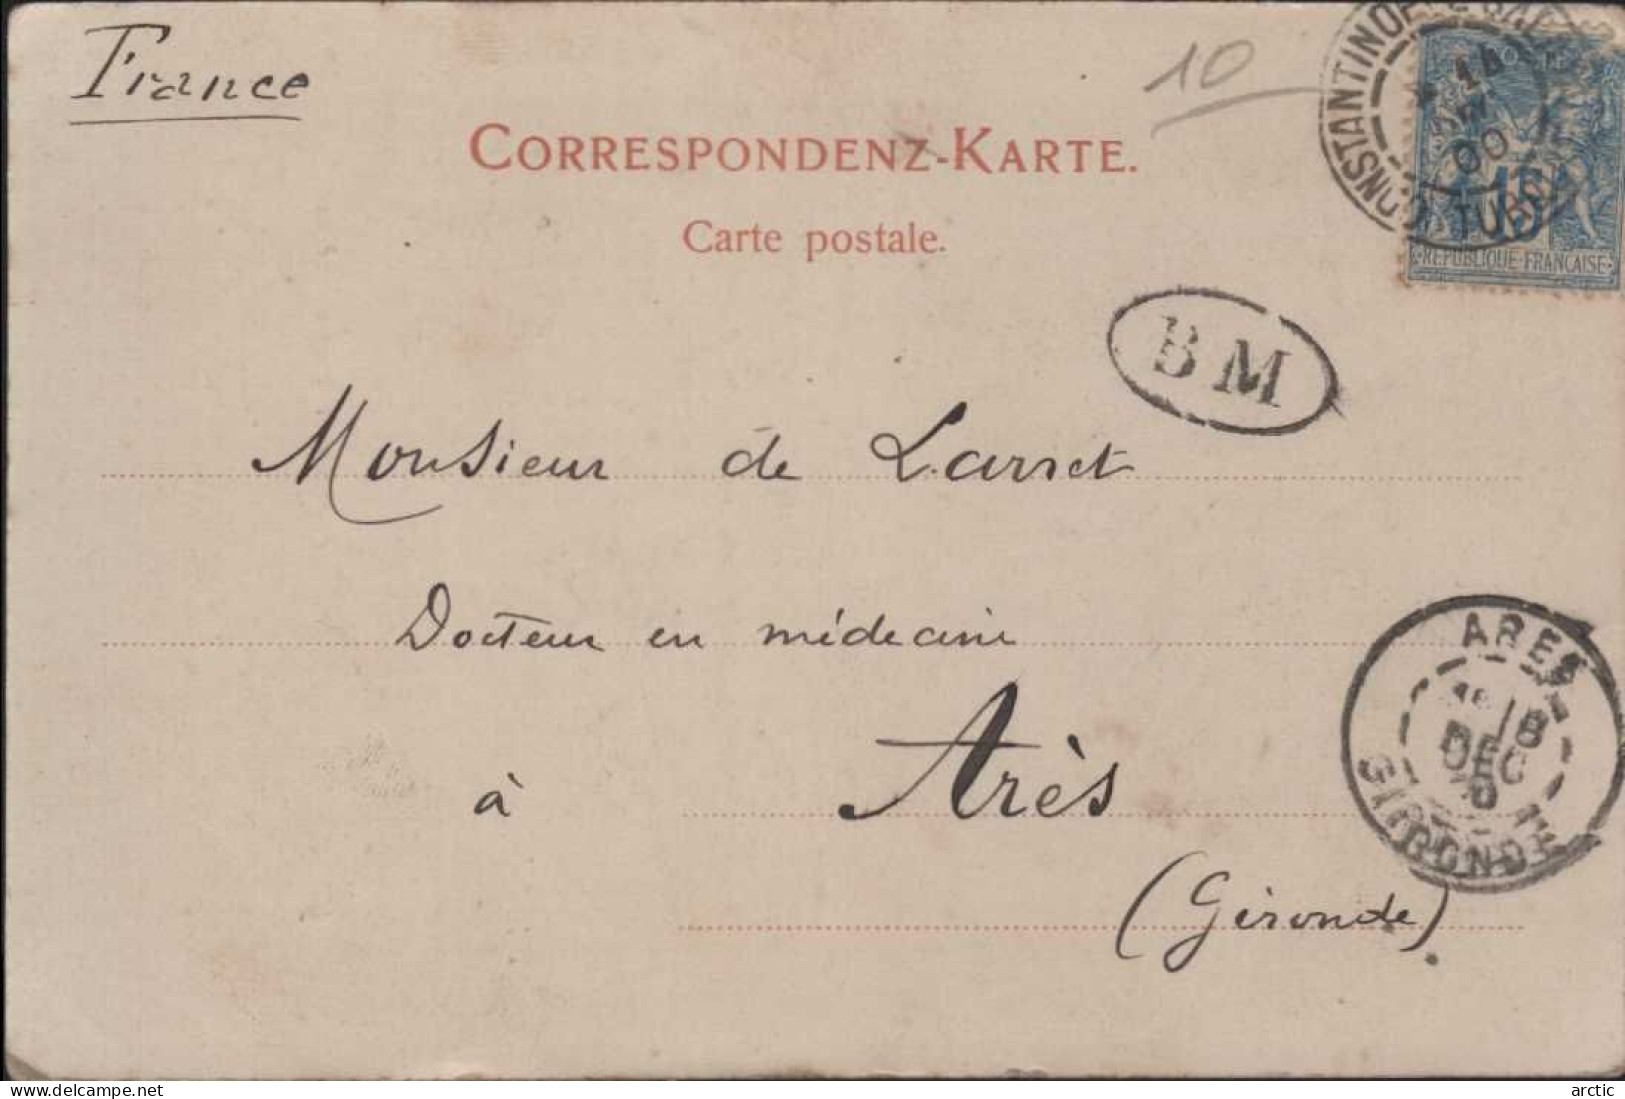 France
10
CORRESPONDENZ-KARTE.
Carte postale.
CONSTANTINOPLE
14
00
15
REPUBLIQUE FRANÇAISE
BM
Monsieur de Larret
Docteur en médecine
à Arès
(Gironde).
ARES
18
DEC
GIRONDE
www.delcampe.net
arctic